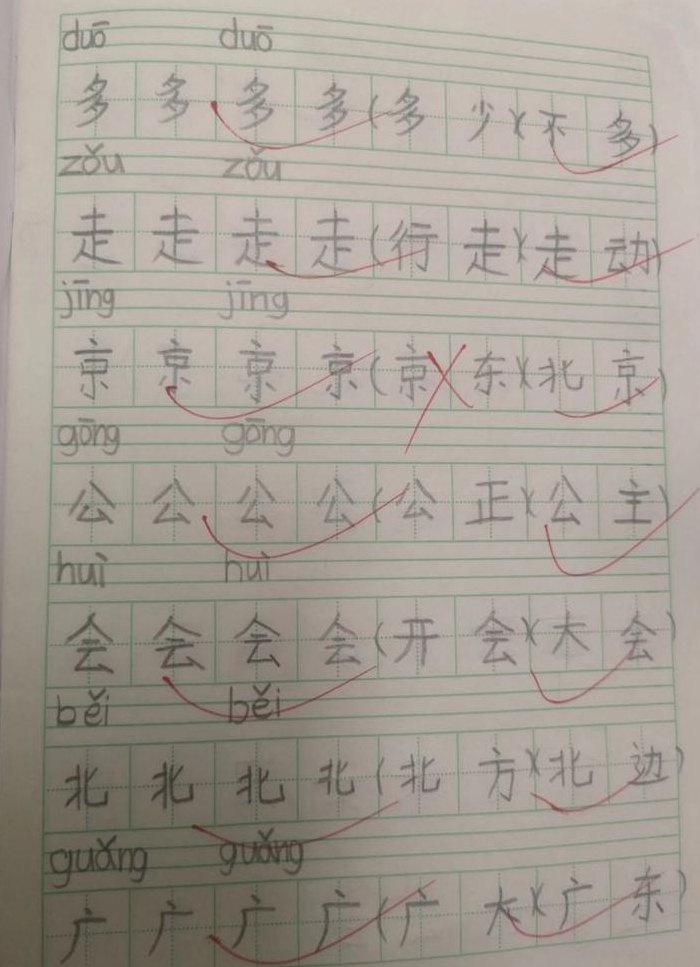 duō duō
多 多 多 多 (多 少)(不 多)
zǒu zǒu
走 走 走 走 (行 走)(走 动)
jīng jīng
京 京 京 京 (京 东)(北 京)
gōng gōng
公 公 公 公 (公 正)(公 主)
huì huì
会 会 会 会 (开 会)(大 会)
běi běi
北 北 北 北 (北 方)(北 边)
guǎng guǎng
广 广 广 广 (广 大)(广 东)